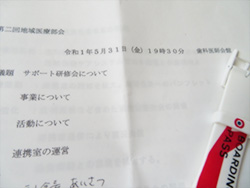 第二回地域医療部会
令和1年5月31日（金）19時30分 歯科医師会館
議題 サポート研修会について
事業について
活動について
連携室の運営
あいさつ
BOARDING
PASS